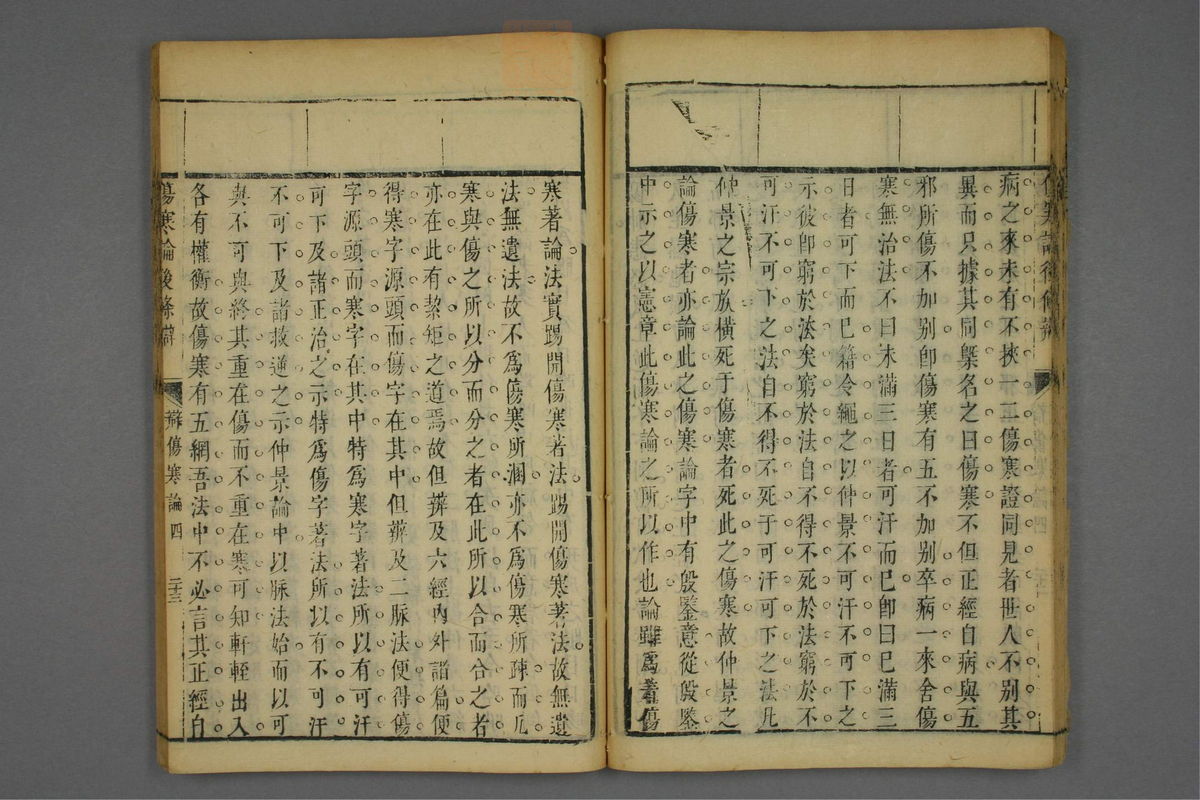 傷寒論後條辯
病之來未有不挾一二傷寒證同見者世人不別其
異而只據其同槩名之曰傷寒不但正經自病與五
邪所傷不加別卽傷寒有五不加別卒病一來舍傷
寒無治法不曰未滿三日者可汗而已卽曰已滿三
日者可下而已籍令繩之以仲景不可汗不可下之
示彼卽窮於法矣窮於法自不得不死於法窮於不
可汗不可下之法自不得不死于可汗可下之法凡
仲景之宗族橫死于傷寒者死此之傷寒故仲景之
論傷寒者亦論此之傷寒論字中有殷鑒意從殷鑒
中示之以憲章此傷寒論之所以作也論雖爲著傷
寒著論法實踢開傷寒著法踢開傷寒著法故無遺
法無遺法故不爲傷寒所溷亦不爲傷寒所疎而凡
寒與傷之所以分而分之者在此所以合而合之者
亦在此有絜矩之道焉故但辨及六經內外諸篇便
得寒字源頭而傷字在其中但辨及二脉法便得傷
字源頭而寒字在其中特爲寒字著法所以有可汗
可下及諸正治之示特爲傷字著法所以有不可汗
不可下及諸救逆之示仲景論中以脉法始而以可
與不可與終其重在傷而不重在寒可知軒輊出入
各有權衡故傷寒有五網吾法中不必言其正經自
傷寒論後條辯
辯傷寒論四
二十三